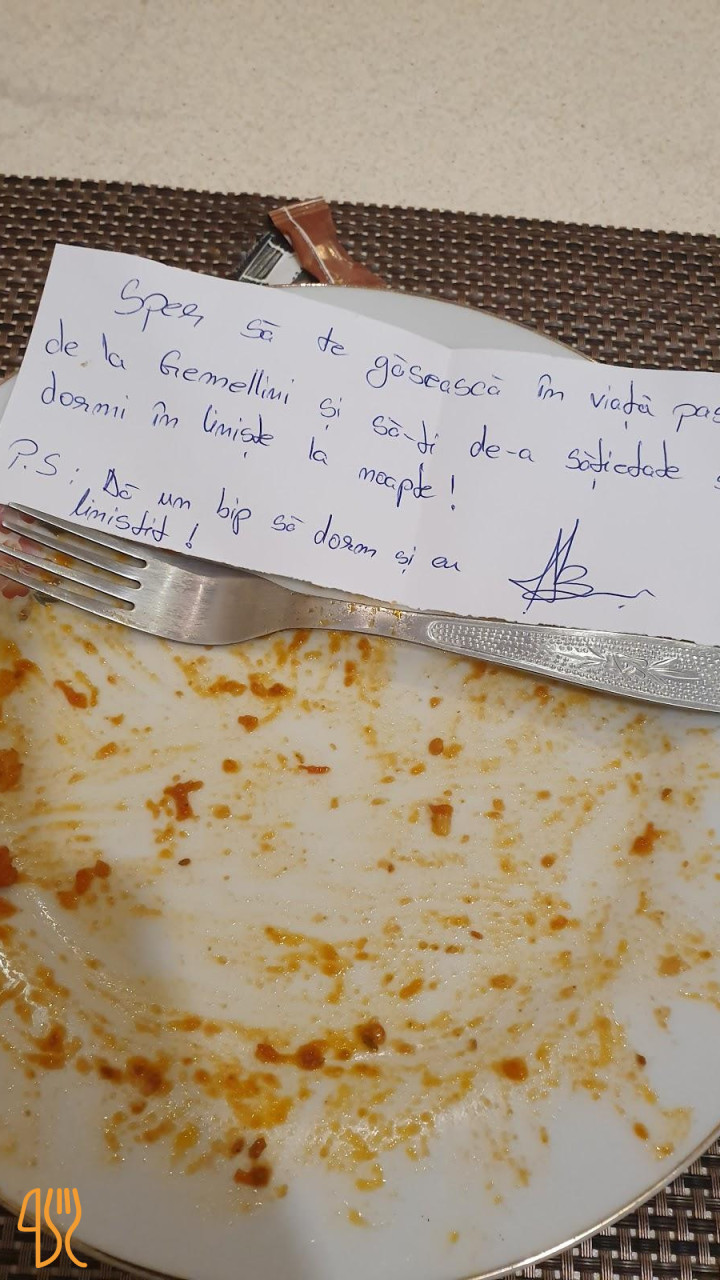 Sper să te găsească în viață pas
de la Gemellini și să-ți de-a sățietate s
dormi în liniște la noapte!
P.S: Dă un bip să dorm și eu
linistit!